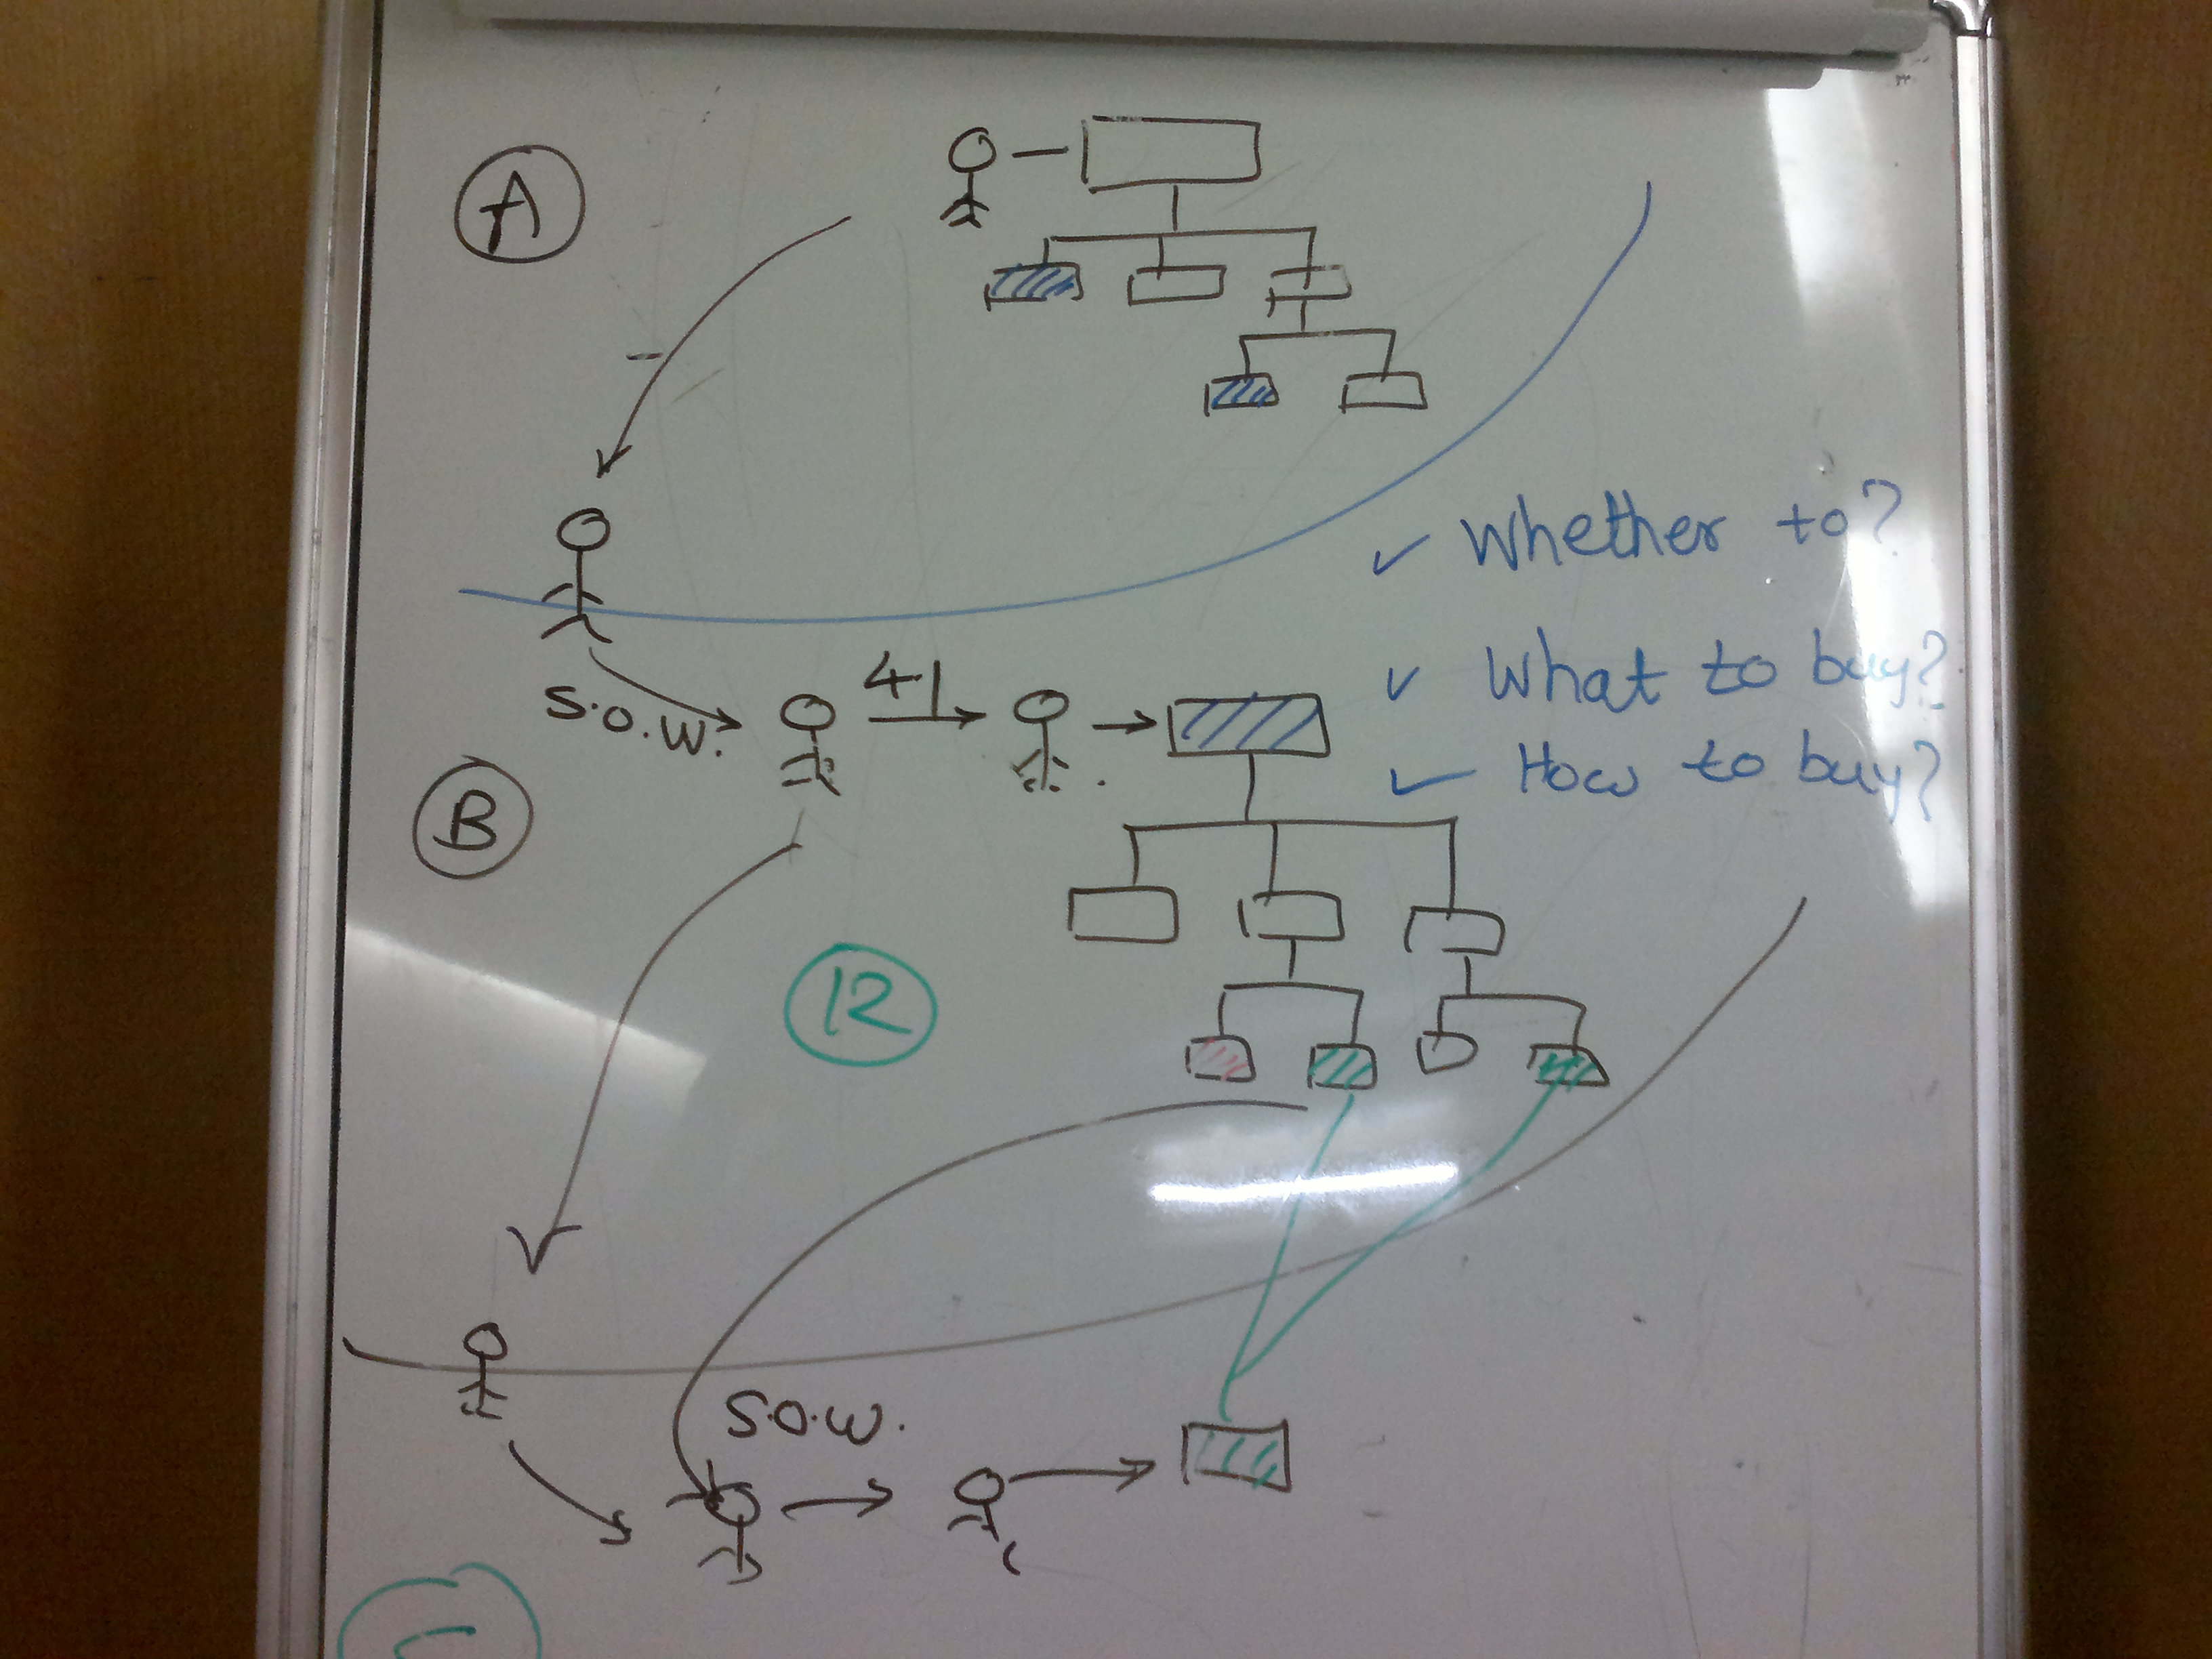 A
✓ Whether to?
S.O.W.
41
✓ What to buy?
✓ How to buy?
B
12
S.O.W.